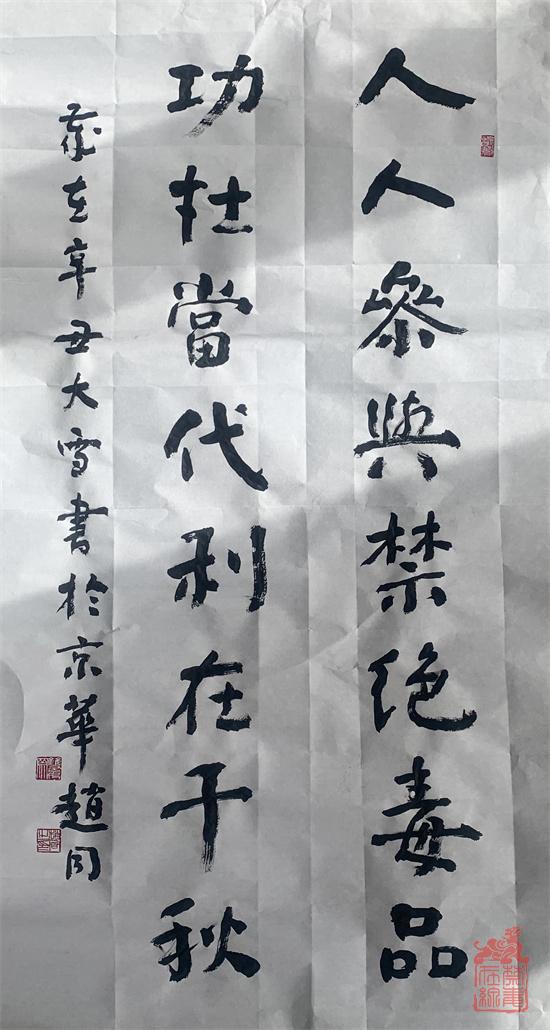 人人參與禁絕毒品
功在當代利在千秋
歲在辛丑大雪書於京華趙同